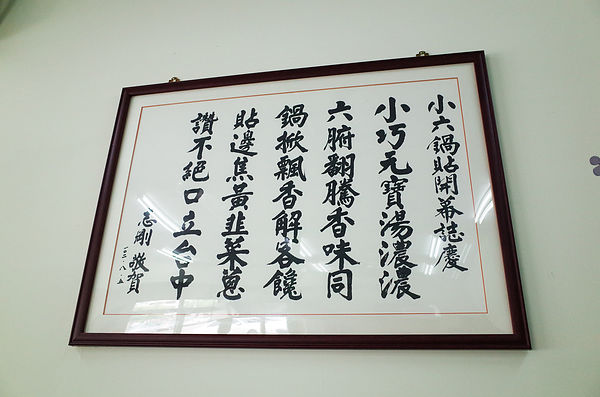 小六鍋貼開幕誌慶
小巧元寶湯濃濃
六腑翻騰香味同
鍋掀飄香解客饞
貼邊焦黃韭菜蔥
讚不絕口立台中
志剛 敬賀
一三.八.五